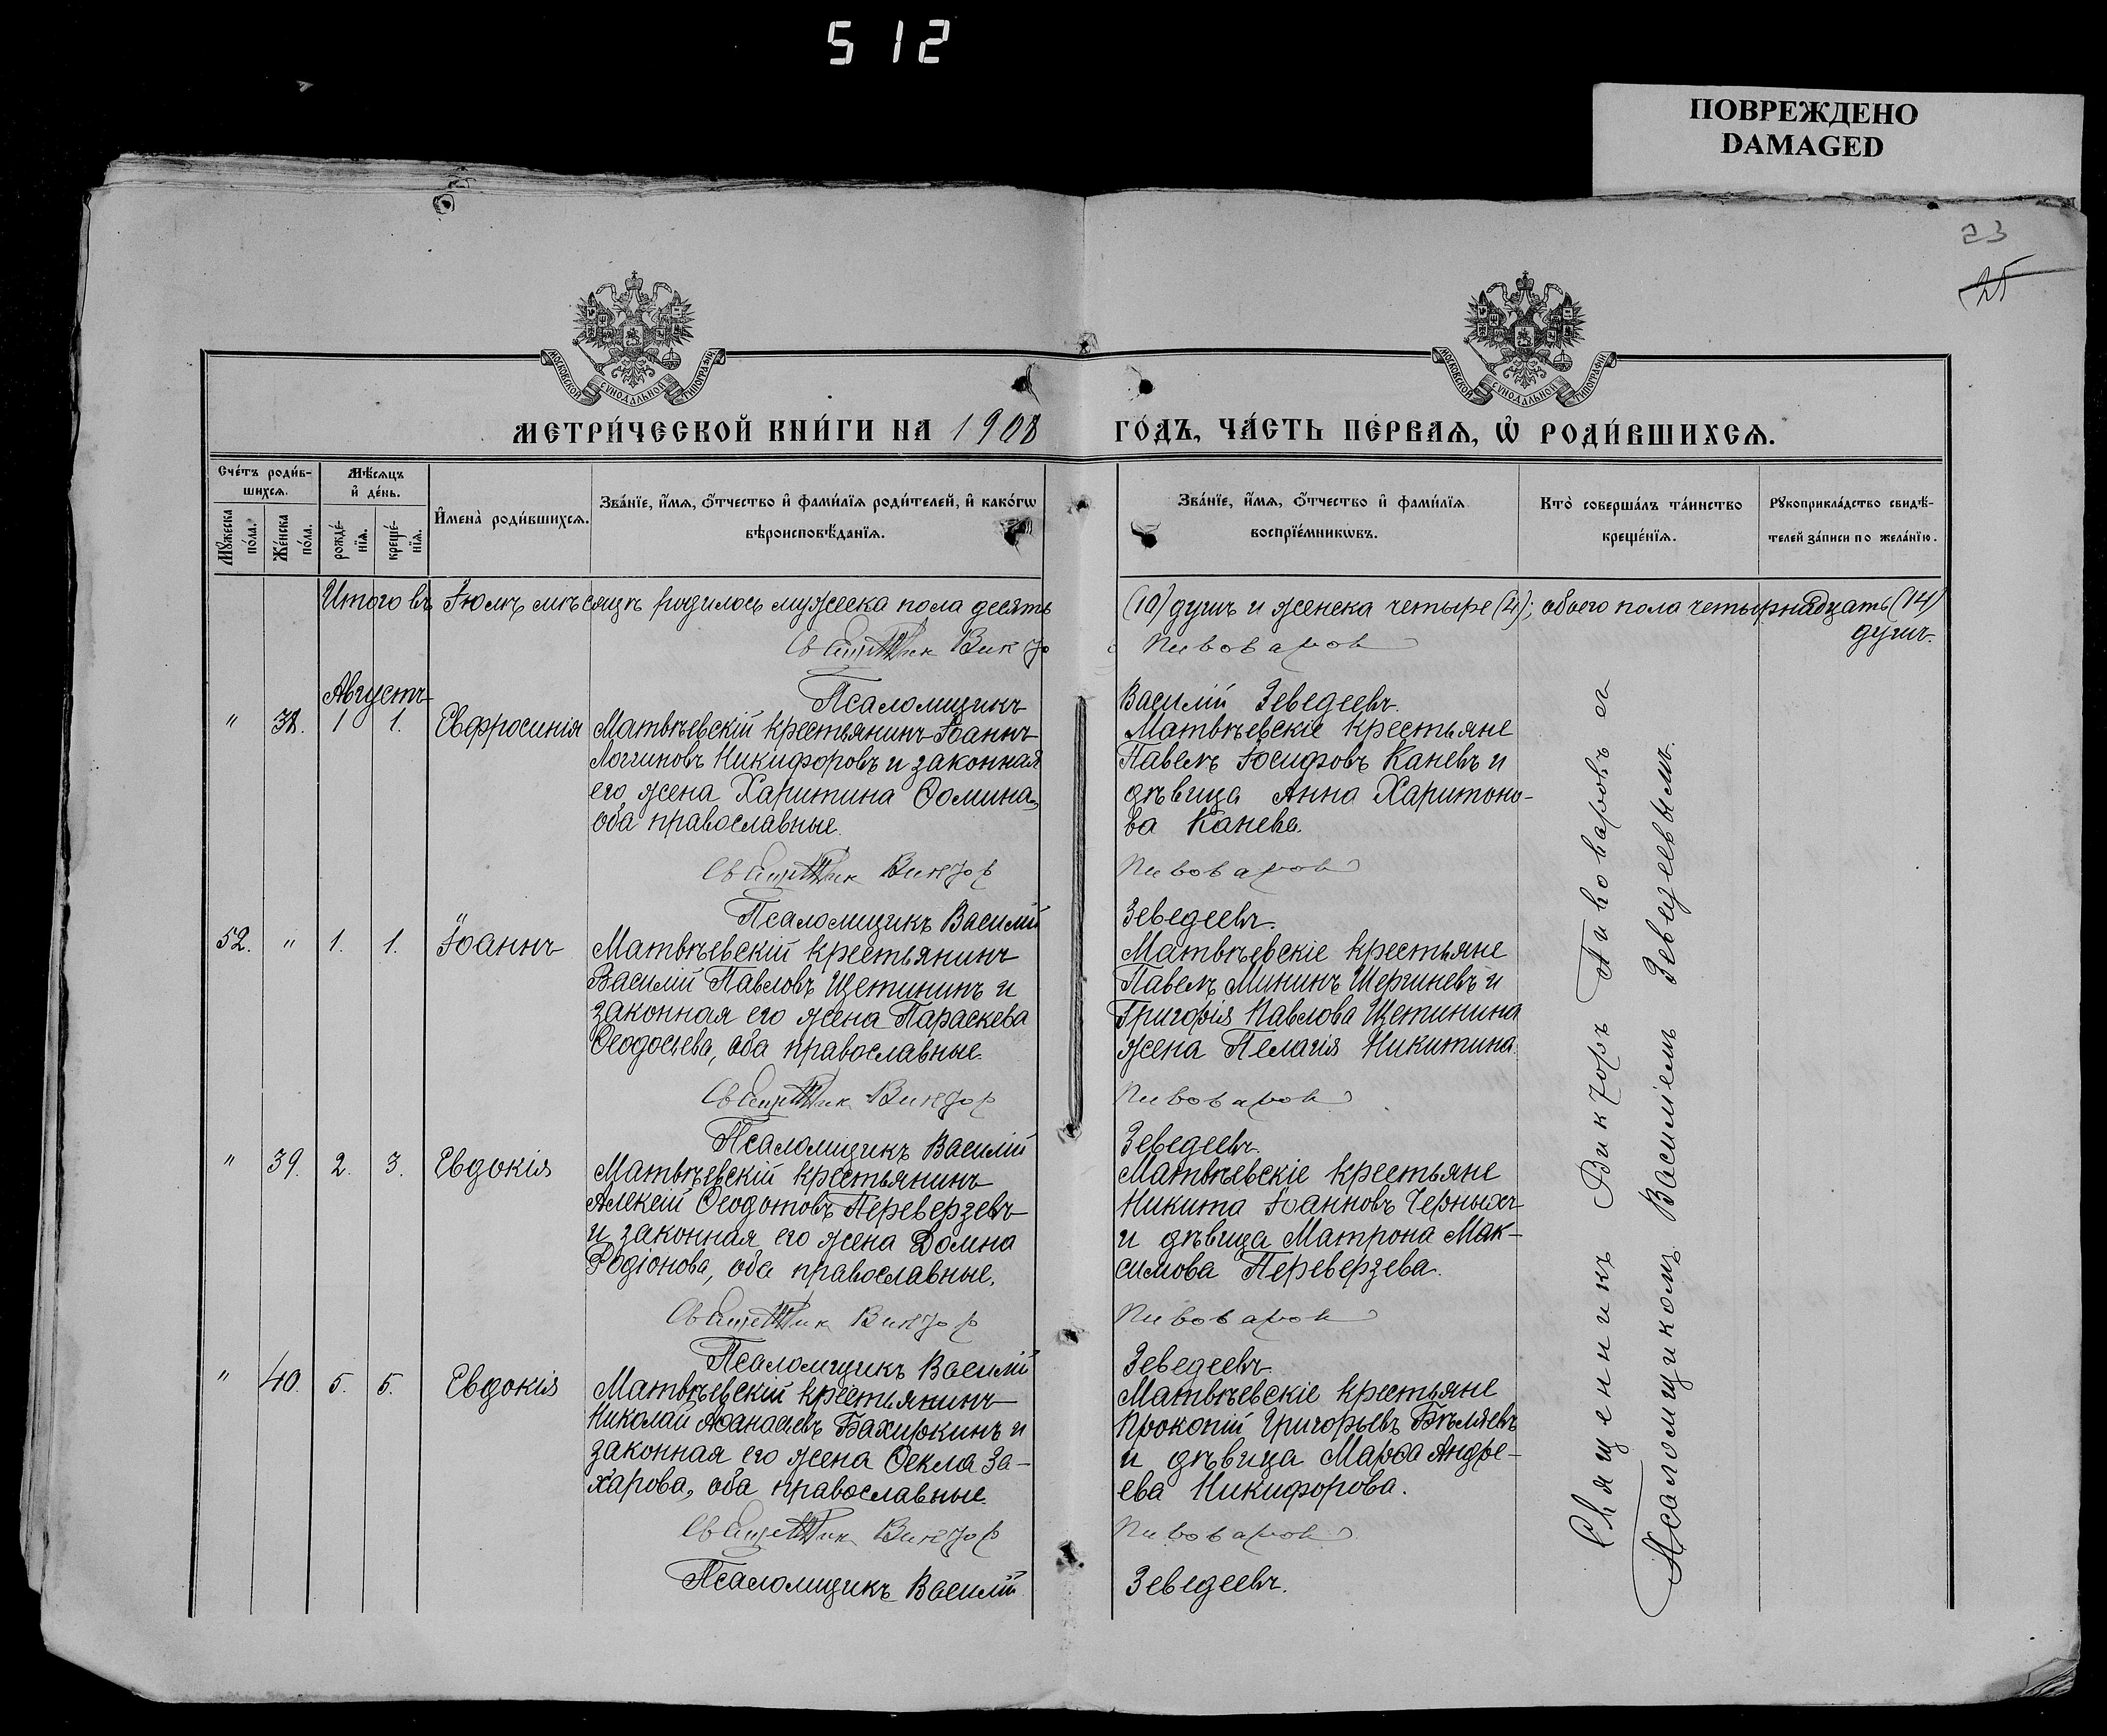 512
ПОВРЕЖДЕНО
DAMAGED
23
25
МОСКОВСКОЙ СѴНОДАЛЬНОЙ ТИПОГРАФІИ
МОСКОВСКОЙ СѴНОДАЛЬНОЙ ТИПОГРАФІИ
МЕТРИ́ЧЕСКОЙ КНИ́ГИ НА 1908 ГО́ДЪ, ЧА́СТЬ ПЕ́РВАѦ, Ѽ РОДИ́ВШИХСѦ.
Сче́тъ роди́в-
шихсѧ.
Мꙋ́жеска по́ла.
Же́нска по́ла.
Мѣ́сѧцъ
и҆ де́нь.
рожде́-
нїѧ.
креще́-
нїѧ.
И҆мена̀ роди́вшихсѧ.
Зва́нїе, и҆́мѧ, ѻ҆́тчество и҆ фами́лїѧ роди́телей, и҆ како́гѡ
вѣроисповѣ́данїѧ.
Зва́нїе, и҆́мѧ, ѻ҆́тчество и҆ фами́лїѧ
воспрїе́мникѡвъ.
Кто̀ соверша́лъ та́инство
креще́нїѧ.
Рꙋкоприкла́дство свидѣ́-
телей за́писи по жела́нїю.
Итого въ Іюлѣ мѣсяцѣ родилось мужеска пола десять (10) душъ и женска четыре (4); обоего пола четырнадцать (14)
душъ.
Священник Виктор Пивоваров
Псаломщикъ Василій Зеведеевъ.
Августъ
" 38. 1 1. Евфросинія Матвѣевскій крестьянинъ Іоаннъ
Логгиновъ Никифоровъ и законная
его жена Харитина Ѳомина,
оба православные.
Матвѣевскіе крестьяне
Павелъ Іосифовъ Каневъ и
дѣвица Анна Харитоно-
ва Канева.
Священник Виктор Пивоваров
Псаломщикъ Василій Зеведеевъ.
52. " 1. 1. Іоаннъ Матвѣевскій крестьянинъ
Василій Павловъ Щетининъ и
законная его жена Параскева
Ѳеодосьева, оба православные.
Матвѣевскіе крестьяне
Павелъ Мининъ Шергиневъ и
Григорія Павлова Щетинина
жена Пелагія Никитина.
Священник Виктор Пивоваров
Псаломщикъ Василій Зеведеевъ.
" 39. 2. 3. Евдокія Матвѣевскій крестьянинъ
Алексій Ѳеодотовъ Переверзевъ
и законная его жена Домна
Родіонова, оба православные.
Матвѣевскіе крестьяне
Никита Іоанновъ Черныхъ
и дѣвица Матрона Мак-
симова Переверзева.
Священник Виктор Пивоваров
Псаломщикъ Василій Зеведеевъ.
" 40. 5. 5. Евдокія Матвѣевскій крестьянинъ
Николай Аѳанасьевъ Бахиркинъ и
законная его жена Ѳекла За-
харова, оба православные.
Матвѣевскіе крестьяне
Прокопій Григорьевъ Бѣляевъ
и дѣвица Марѳа Андре-
ева Никифорова.
Священник Виктор Пивоваров
Псаломщикъ Василій Зеведеевъ.
Священникъ Викторъ Пивоваровъ съ
Псаломщикомъ Василіемъ Зеведеевымъ.